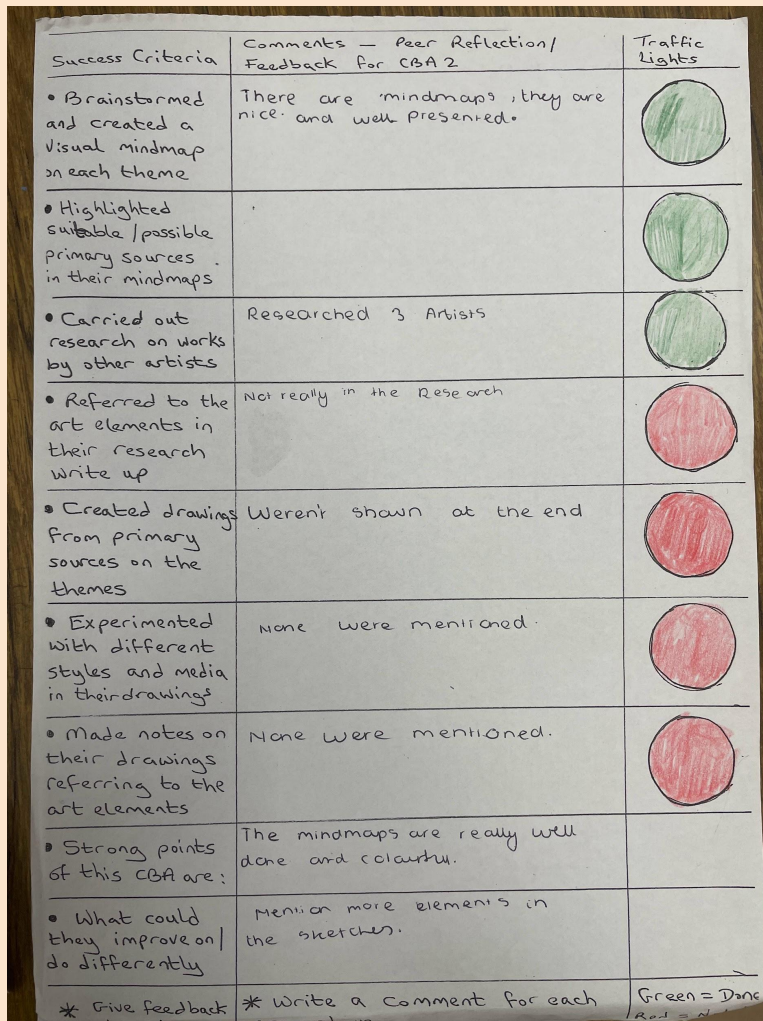 Success Criteria
Comments — Peer Reflection/
Feedback for CBA 2
Traffic
Lights
• Brainstormed
and created a
visual mindmap
on each theme
There are mindmaps, they are
nice. and well presented.
• Highlighted
suitable / possible
primary sources
in their mindmaps
• Carried out
research on works
by other artists
Researched 3 Artists
• Referred to the
art elements in
their research
write up
Not really in the Research
• Created drawings
from primary
sources on the
themes
Weren't shown at the end
• Experimented
with different
styles and media
in their drawings
None were mentioned.
• Made notes on
their drawings
referring to the
art elements
None were mentioned.
• Strong points
of this CBA are:
The mindmaps are really well
done and colourful.
• What could
they improve on/
do differently
Mention more elements in
the sketches.
* Give feedback
* Write a comment for each
Green = Done
Red =